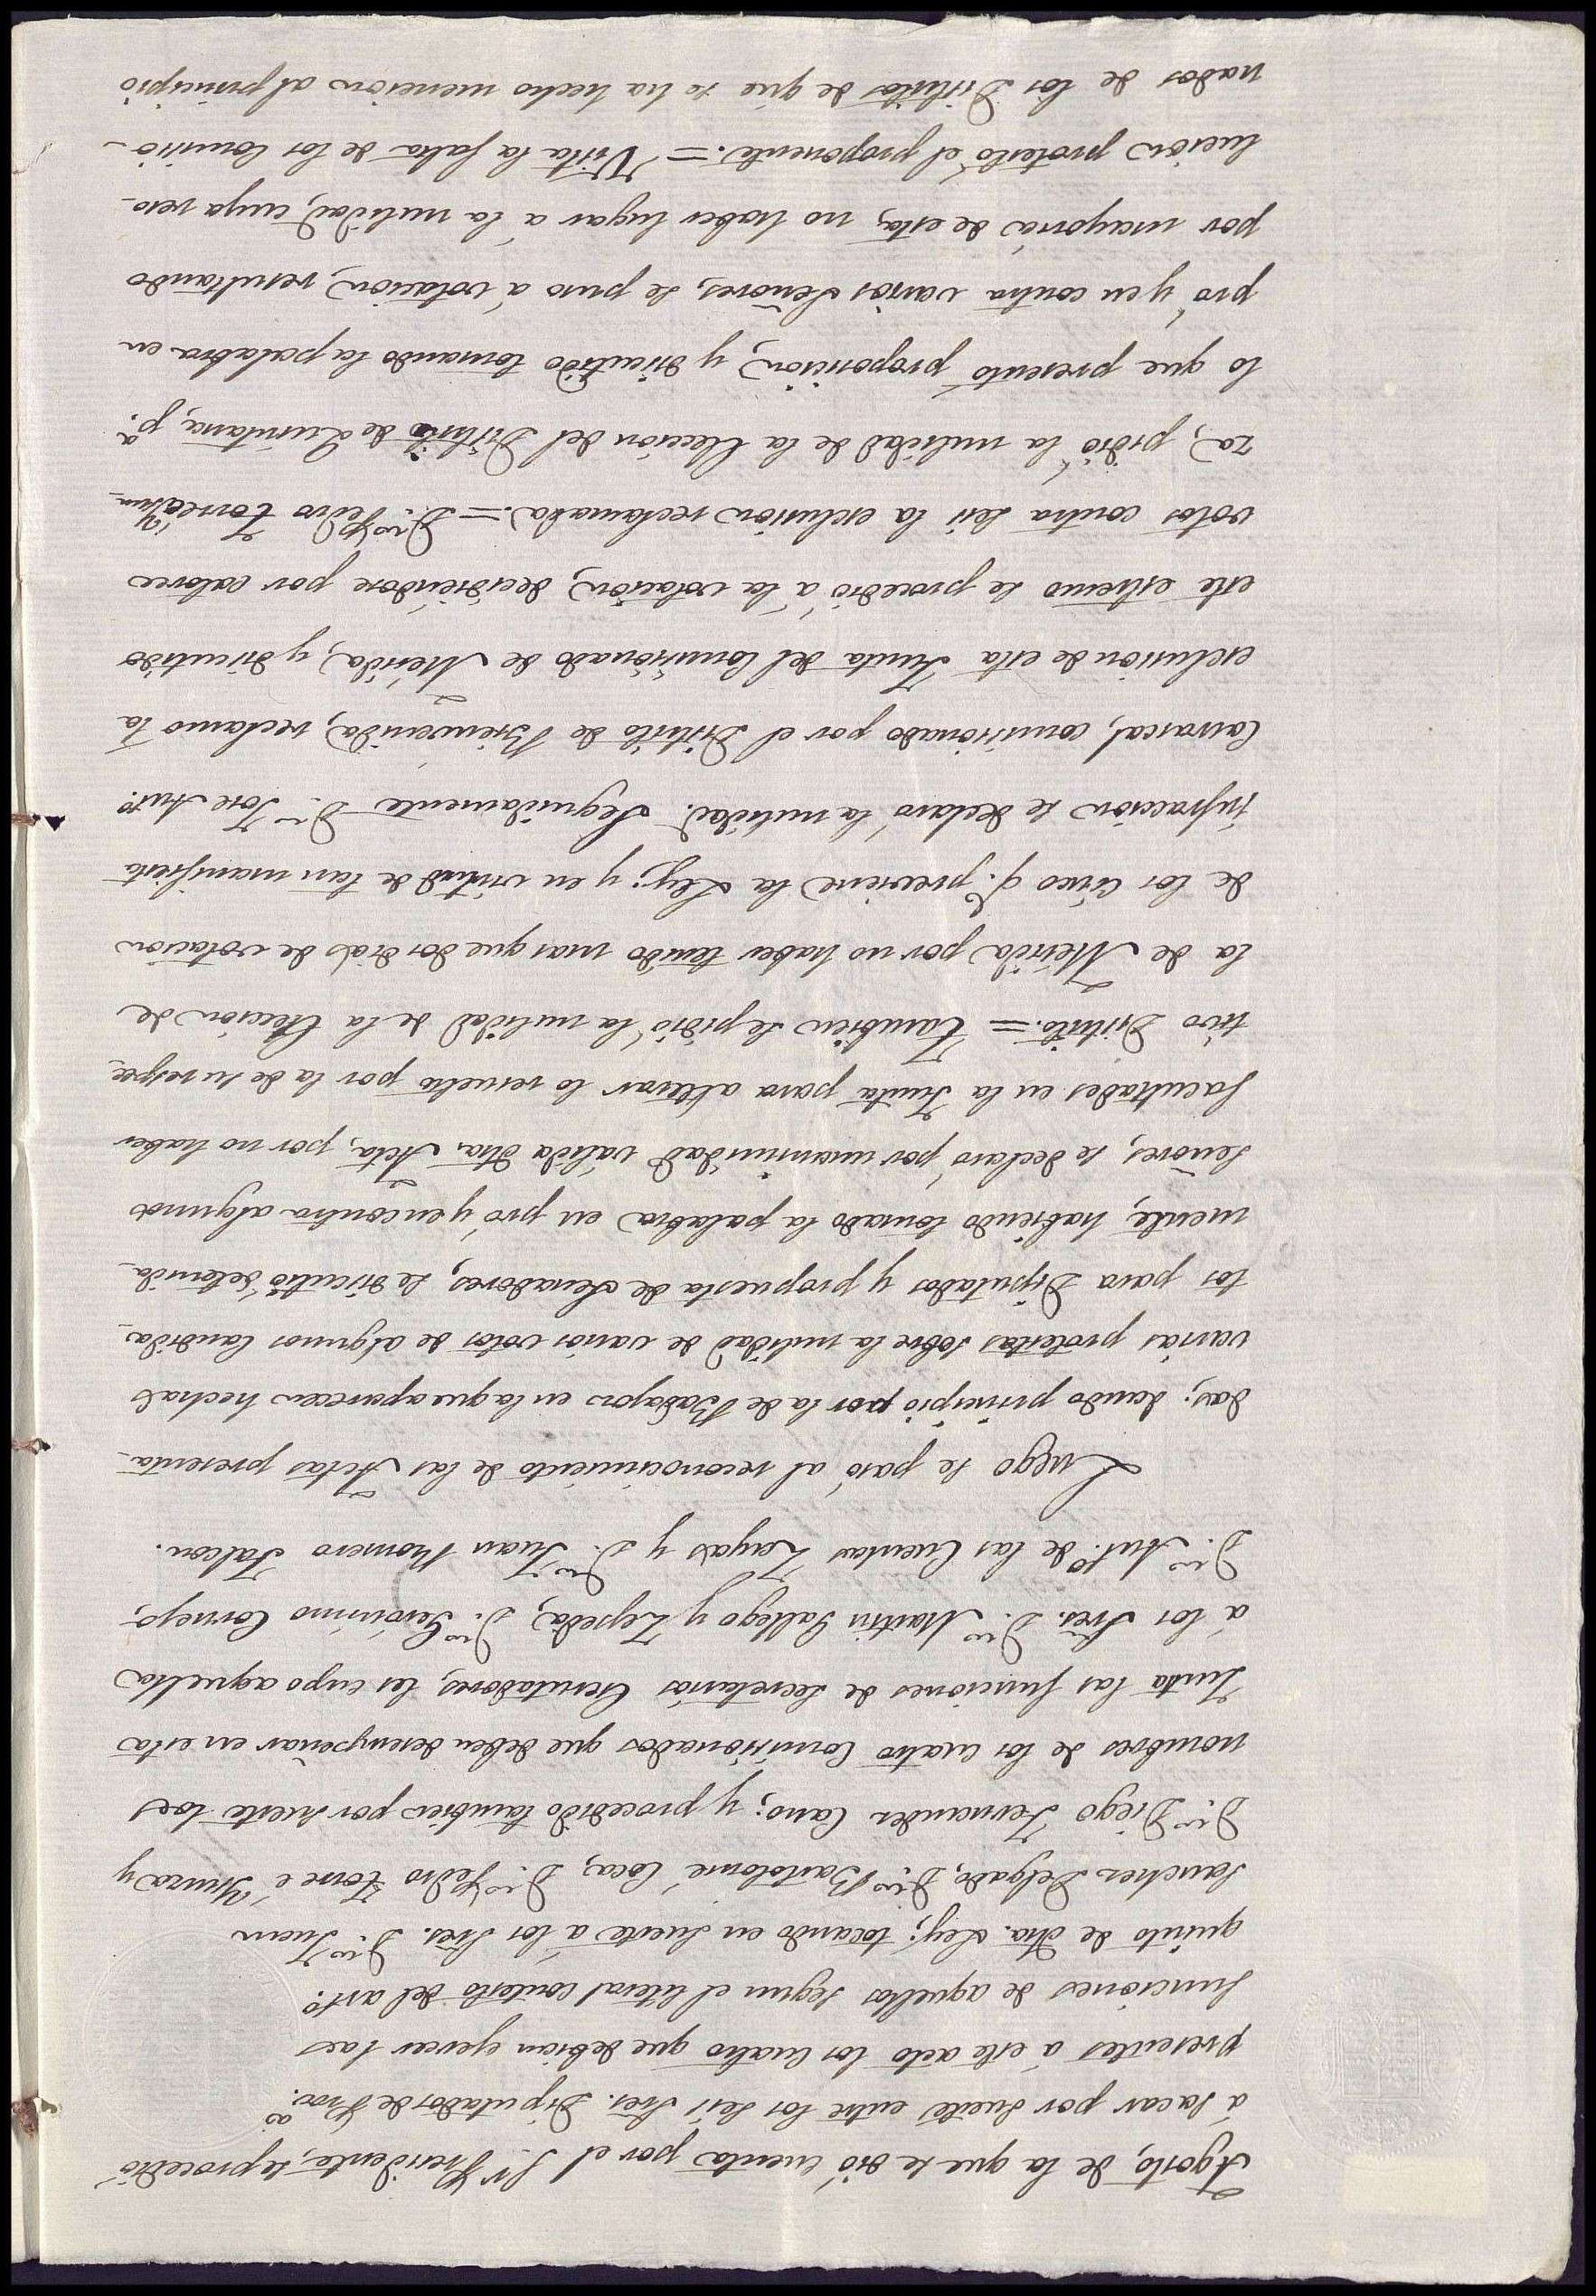 Agosto, de la que se dió cuenta por el Sr. Presidente, se procedió
á sacar por suerte entre los seis Sres. Diputados de Proa.
presentes á este acto los cuatro que debian ejercer las
funciones de aquellos segun el literal contesto del arto.
quinto de dha. Ley; tocando en suerte á los Sres. Dn. Juan
Sanchez Delgado, Dn. Bartolomé Coca, Dn. Pedro Torre é Ysunza y
Dn. Diego Fernandez Cano; y procedido tambien por suerte los
nombres de los cuatro Comisionados que deben desempeñar en esta
Junta las funciones de Secretarios Escrutadores, les cupo aquella
á los Sres. Dn. Martin Gallego y Zepeda, Dn. Gerónimo Cornejo,
Dn. Anto. de las Cuentas Zayas y Dn. Juan Romero Falcon.
Luego se pasó al reconocimiento de las Actas presenta-
das; dando principio por la de Badajoz en la que aparecen hechas
varias protestas sobre la nulidad de varios votos de algunos Candida-
tos para Diputados y propuesta de Senadores, se discutió detenida-
mente, habiendo tomado la palabra en pró y en contra algunos
Señores, se declaró por unanimidad válida dha. Acta, por no haber
facultades en la Junta para alterar lo resuelto por la de su respec-
tivo Distrito. = Tambien se pidió la nulidad de la Eleccion de
la de Mérida por no haber tenido mas que dos dias de votacion
de los cinco qe. previene la Ley; y en virtud de tan manifiesta
infraccion se declaró la nulidad. Seguidamente Dn. Jose Anto.
Carrascal, comisionado por el Distrito de Bienvenida, reclamó la
esclusion de esta Junta del Comisionado de Mérida, y discutido
este estremo se procedió á la votacion, decidiéndose por catorce
votos contra seis la esclusion reclamada. = Dn. Pedro Torre é Ysun-
za, pidió la nulidad de la Eleccion del Distrito de Quintana, pa.
lo que presentó proposicion, y discutido tomando la palabra en
pró y en contra varios Señores, se puso á votacion, resultando
por mayoría de esta, no haber lugar á la nulidad, cuya reso-
lucion protestó el proponente. = Vista la falta de los Comisio-
nados de los Distritos de que se ha hecho mencion al principio